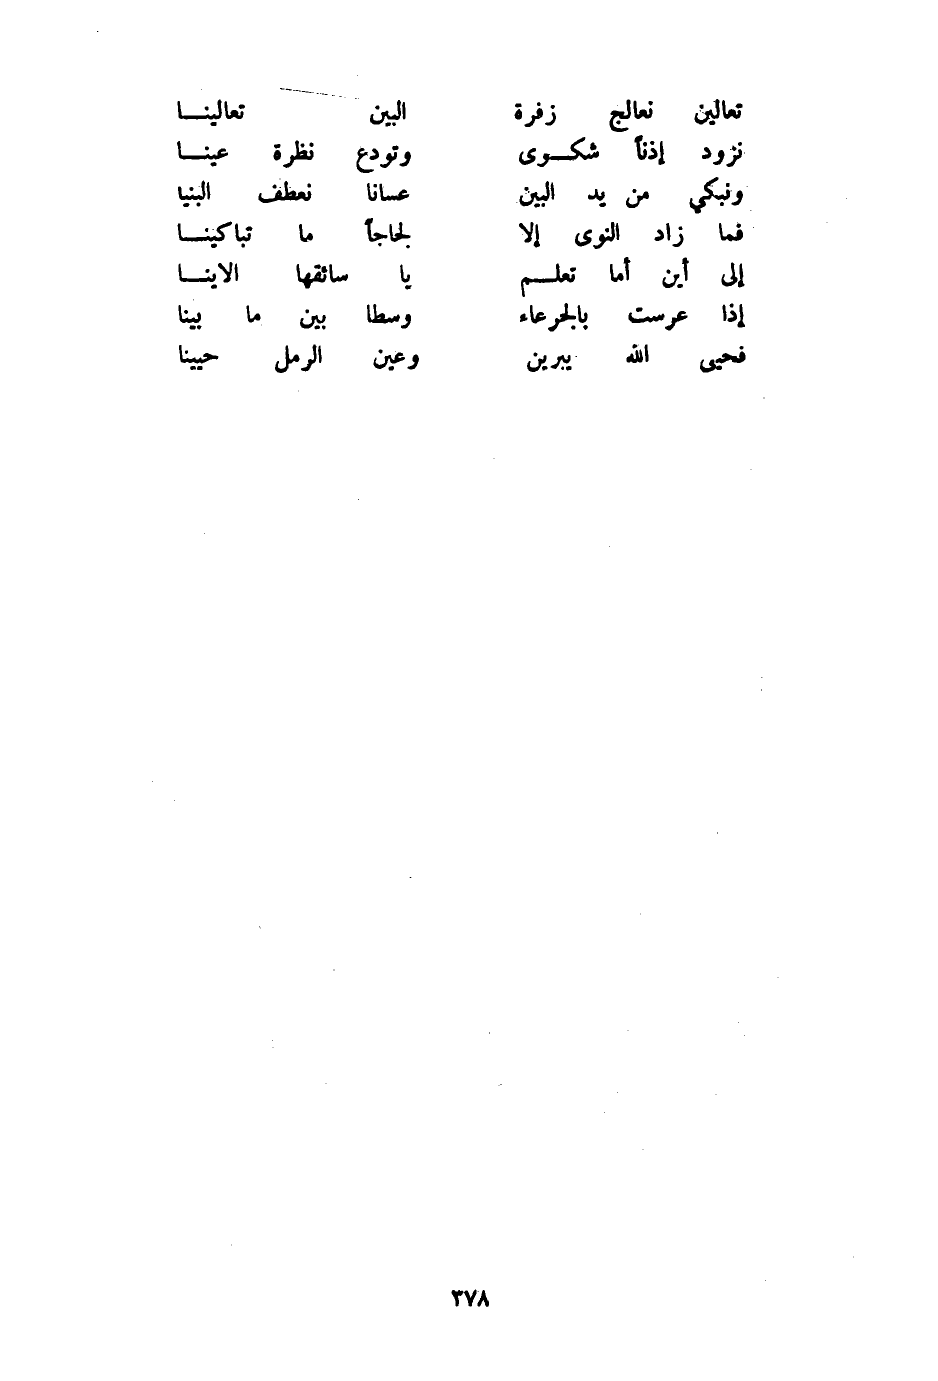 تعالين نعالج زفرة البين تعالينـــا
نزود إذناً شكــوى وتودع نظرة عينـــا
ونبكي من يد البين عسانا نعطف البنيا
فما زاد النوى إلا لجاجاً ما تباكينـــا
إلى أين أما تعلـــم يا سائقها الاينـــا
إذا عرست بالجرعاء وسطا بين ما بينا
فحيى الله يبرين وعين الرمل حيينا
٣٧٨